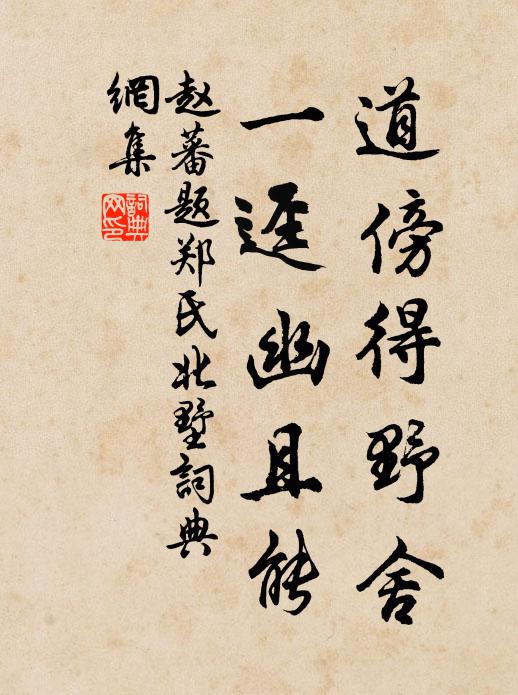 道傍得野舍
一逕幽且能
赵蕃题郑氏北墅詞典
網集
詞典网印